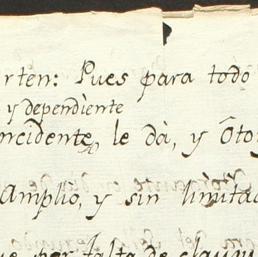 rten: Pues para todo
y dependiente
ncidente, le dà, y Oto
Amplio, y sin limita
ue por falta de clausu